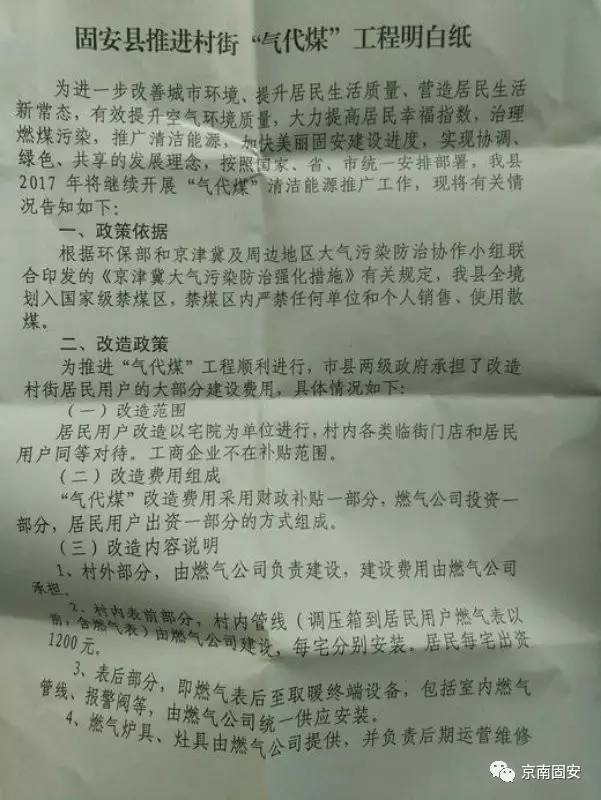 固安县推进村街“气代煤”工程明白纸
为进一步改善城市环境、提升居民生活质量、营造居民生活
新常态，有效提升空气环境质量，大力提高居民幸福指数，治理
燃煤污染，推广清洁能源，加快美丽固安建设进度，实现协调、
绿色、共享的发展理念，按照国家、省、市统一安排部署，我县
2017 年将继续开展“气代煤”清洁能源推广工作，现将有关情
况告知如下：
一、政策依据
根据环保部和京津冀及周边地区大气污染防治协作小组联
合印发的《京津冀大气污染防治强化措施》有关规定，我县全境
划入国家级禁煤区，禁煤区内严禁任何单位和个人销售、使用散
煤。
二、改造政策
为推进“气代煤”工程顺利进行，市县两级政府承担了改造
村街居民用户的大部分建设费用，具体情况如下：
（一）改造范围
居民用户改造以宅院为单位进行，村内各类临街门店和居民
用户同等对待。工商企业不在补贴范围。
（二）改造费用组成
“气代煤”改造费用采用财政补贴一部分，燃气公司投资一
部分，居民用户出资一部分的方式组成。
（三）改造内容说明
1、村外部分，由燃气公司负责建设，建设费用由燃气公司
承担。
2、村内表前部分，村内管线（调压箱到居民用户燃气表以
前，含燃气表）由燃气公司建设，每宅分别安装。居民每宅出资
1200 元。
3、表后部分，即燃气表后至取暖终端设备，包括室内燃气
管线、报警阀等，由燃气公司统一供应安装。
4、燃气炉具、灶具由燃气公司提供，并负责后期运营维修
京南固安